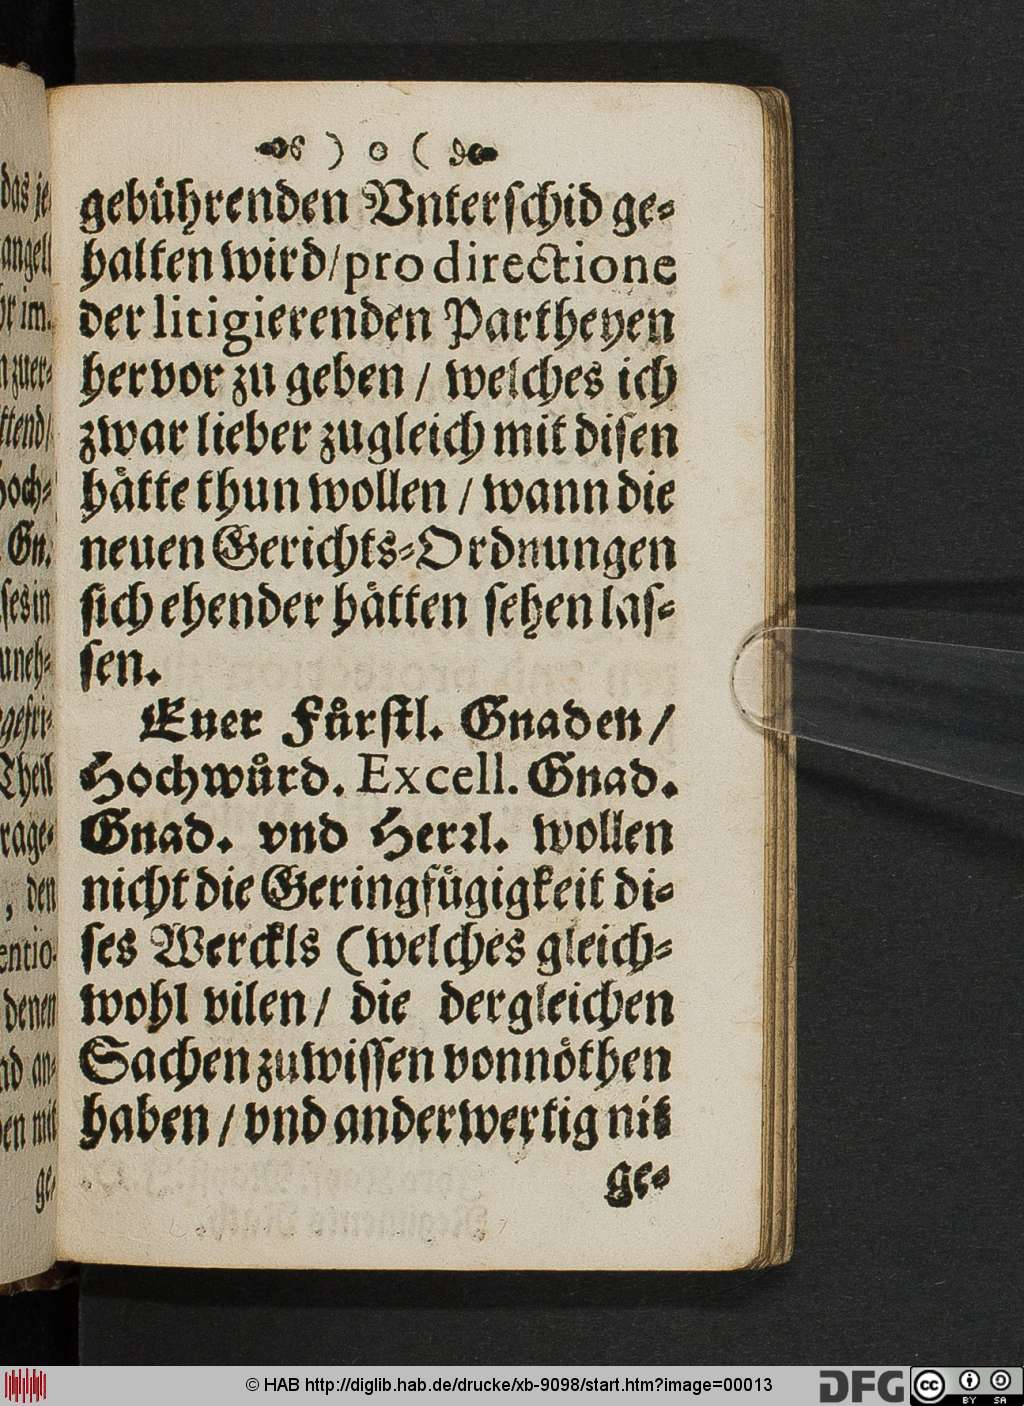 ) o (
gebührenden Vnterschid ge-
halten wird/pro directione
der litigierenden Partheyen
hervor zu geben / welches ich
zwar lieber zugleich mit disen
håtte thun wollen / wann die
neuen Gerichts-Ordnungen
sich ehender håtten sehen las-
sen.
Euer Fůrstl. Gnaden/
Hochwůrd. Excell. Gnad.
Gnad. vnd Herꝛl. wollen
nicht die Geringfügigkeit di-
ses Werckls (welches gleich-
wohl vilen/ die dergleichen
Sachen zuwissen vonnöthen
haben / vnd anderwertig nit
ge-
das je
angel
im.
zuer-
ttend/
hoch-
Gn.
ses in
uneh-
Theil
rage-
, den
entio-
denen
an-
mit
ge-
© HAB http://diglib.hab.de/drucke/xb-9098/start.htm?image=00013
DFG
cc
BY SA